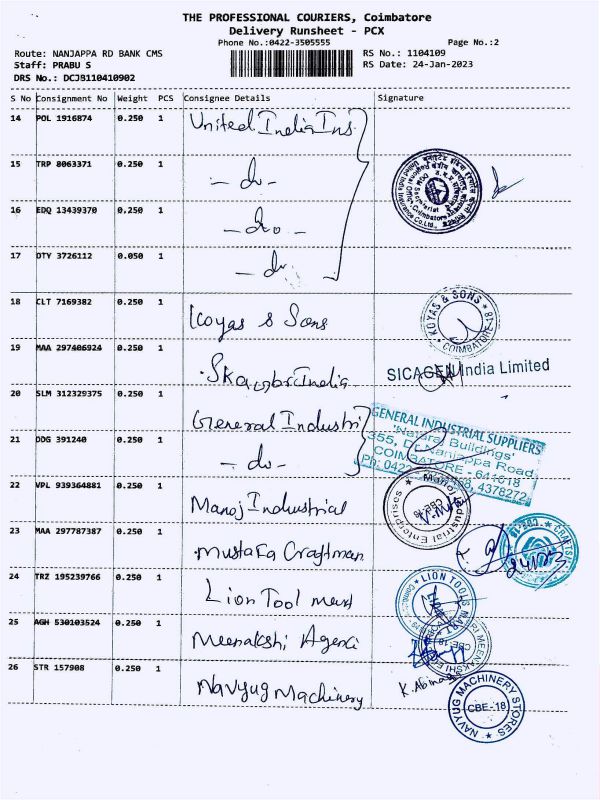 THE PROFESSIONAL COURIERS, Coimbatore
Delivery Runsheet - PCX
Phone No.:0422-3505555 Page No.:2
Route: NANJAPPA RD BANK CMS RS No.: 1104109
Staff: PRABU S RS Date: 24-Jan-2023
DRS No.: DCJB110410902
S No Consignment No Weight PCS Consignee Details Signature
14 POL 1916874 0.250 1 United India Ins.
15 TRP 8063371 0.250 1 - do -
16 EDQ 13439370 0.250 1 - do -
17 OTY 3726112 0.050 1 - do -
18 CLT 7169382 0.250 1 Koyas & Sons
KOYAS & SONS
COIMBATORE-18
19 MAA 297406924 0.250 1
SICAGEN India Limited
20 SLM 312329375 0.250 1 General Industri
21 DDG 391240 0.250 1 - do -
GENERAL INDUSTRIAL SUPPLIERS
'Nataraj Buildings'
355, Dr. Nanjappa Road,
COIMBATORE - 641018
Ph: 0422 4378272
22 VPL 939364881 0.250 1 Manoj Industrial
Manoj Industrial Enterprises
23 MAA 297787387 0.250 1 Mustafa Craftman
24 TRZ 195239766 0.250 1 Lion Tool mart
LION TOOLS MART
25 AGH 530103524 0.250 1 Meenakshi Agenci
26 STR 157908 0.250 1 Navyug Machinery
K. Abinaya
NAVYUG MACHINERY STORES
CBE-18